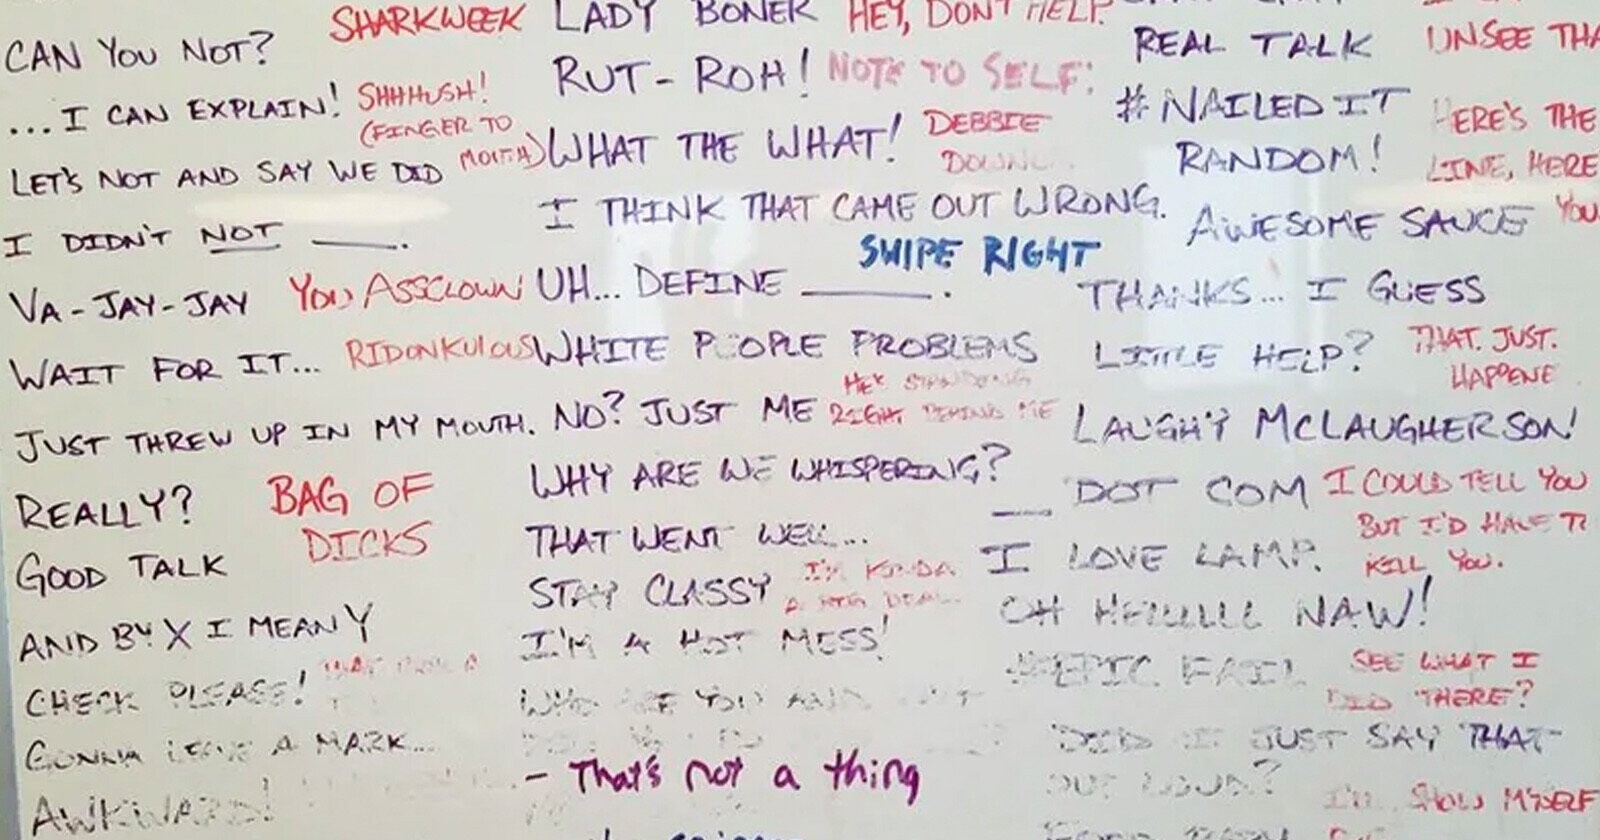 CAN YOU NOT?
SHARKWEEK
...I CAN EXPLAIN!
SHHHUSH!
(FINGER TO
MOUTH)
LET'S NOT AND SAY WE DID
I DIDN'T NOT ____.
VA-JAY-JAY
YOU ASSCLOWN
WAIT FOR IT...
RIDONKULOUS
JUST THREW UP IN MY MOUTH.
REALLY?
BAG OF
DICKS
GOOD TALK
AND BY X I MEAN Y
CHECK PLEASE!
GONNA LEAVE A MARK...
AWKWARD!
LADY BONER
HEY, DON'T HELP.
RUT-ROH!
NOTE TO SELF:
WHAT THE WHAT!
DEBBIE
DOWN
I THINK THAT CAME OUT WRONG.
SWIPE RIGHT
UH... DEFINE ____.
WHITE PEOPLE PROBLEMS
HE'S STANDING
RIGHT BEHIND ME
NO? JUST ME
WHY ARE WE WHISPERING?
THAT WENT WELL...
STAY CLASSY
I'M KINDA
A BIG DEAL..
I'M A HOT MESS!
WHO ARE YOU AND
- That's not a thing
REAL TALK
UNSEE THA
#NAILED IT
HERE'S THE
RANDOM!
LINE, HERE
AWESOME SAUCE
YOU
THANKS... I GUESS
LITTLE HELP?
THAT. JUST.
HAPPENE
LAUGHY MCLAUGHERSON!
__ DOT COM
I COULD TELL YOU
BUT I'D HAVE T
KILL YOU.
I LOVE LAMP.
OH HELLLLL NAW!
#EPIC FAIL
SEE WHAT I
DID THERE?
DID I JUST SAY THAT
OUT LOUD?
I'LL SHOW MYSELF